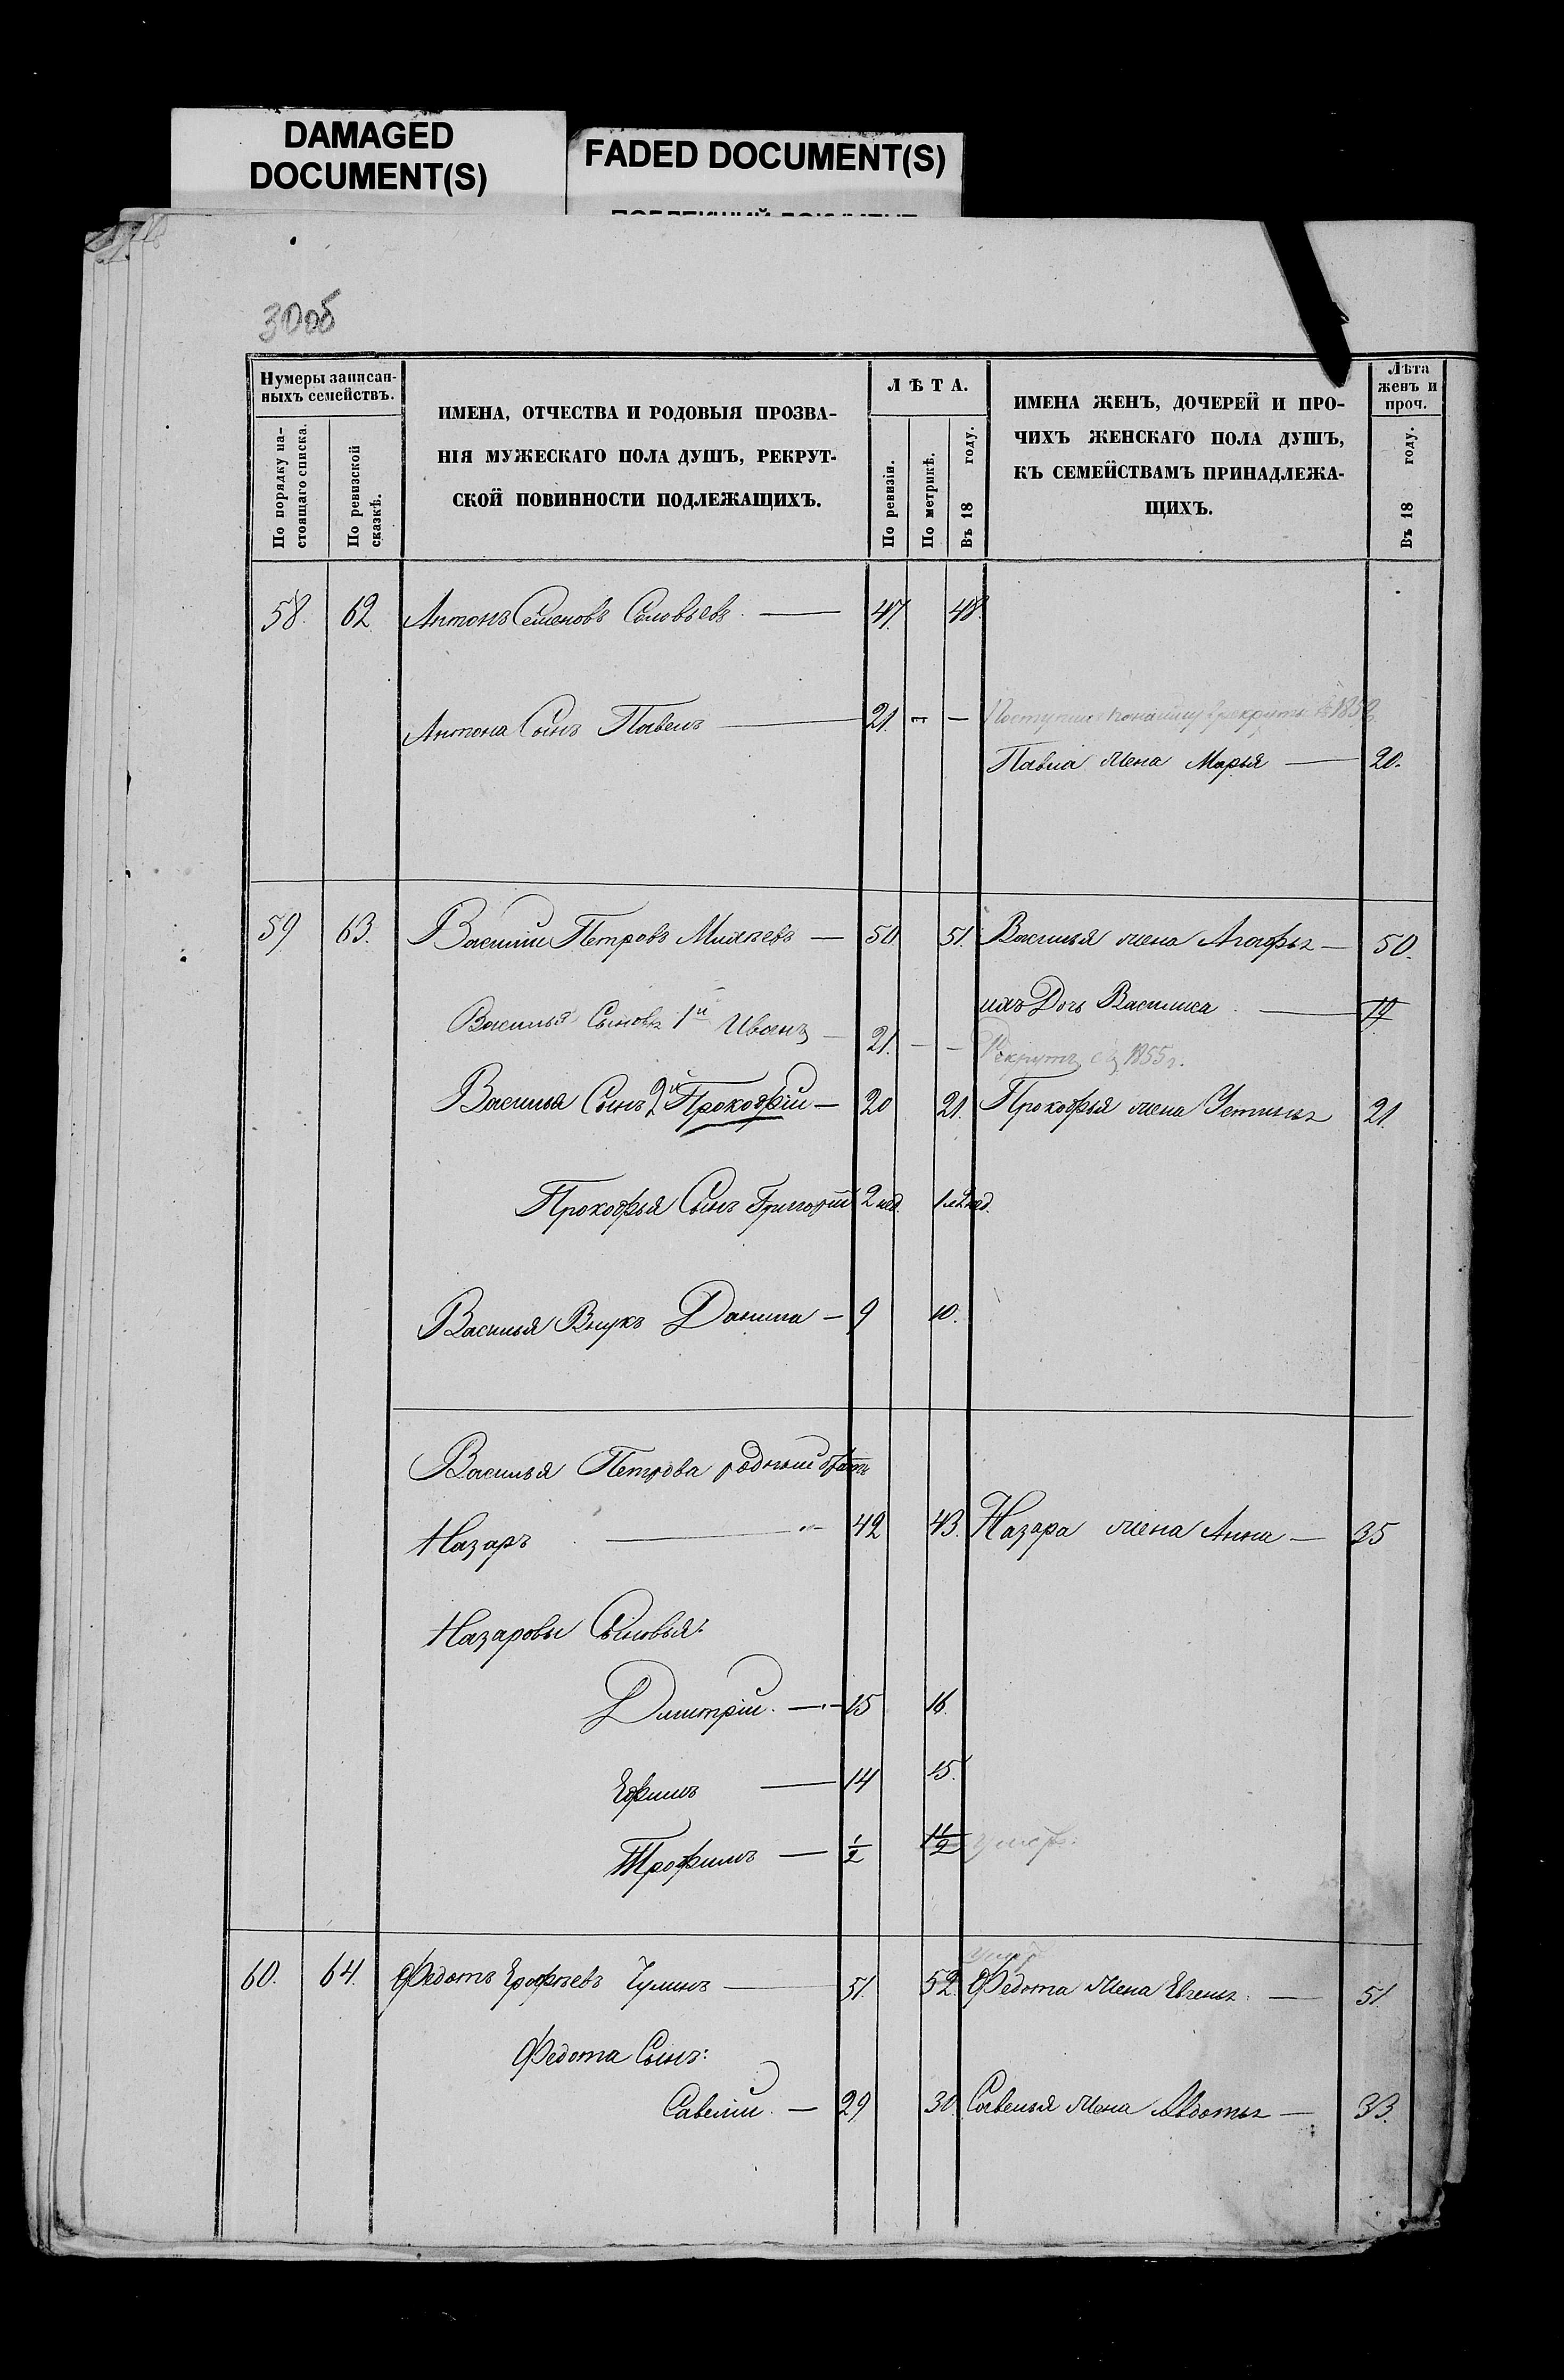 DAMAGED
DOCUMENT(S)
FADED DOCUMENT(S)
30об
Нумеры записан-
ныхъ семействъ.
По порядку на-
стоящаго списка.
По ревизской
сказкѣ.
ИМЕНА, ОТЧЕСТВА И РОДОВЫЯ ПРОЗВА-
НІЯ МУЖЕСКАГО ПОЛА ДУШЪ, РЕКРУТ-
СКОЙ ПОВИННОСТИ ПОДЛЕЖАЩИХЪ.
ЛѢТА.
По ревизіи.
По метрикѣ.
Въ 18 году.
ИМЕНА ЖЕНЪ, ДОЧЕРЕЙ И ПРО-
ЧИХЪ ЖЕНСКАГО ПОЛА ДУШЪ,
КЪ СЕМЕЙСТВАМЪ ПРИНАДЛЕЖА-
ЩИХЪ.
Лѣта
женъ и
проч.
Въ 18 году.
58. 62 Антонъ Семеновъ Соловьевъ — 47. 48.
Антона Сынъ Павелъ — 21. — —
Павла жена Марья — 20.
59 63. Василій Петровъ — 50 51. Василья жена Агафья — 50.
ихъ Дочь Василиса — 19.
Василья Сыновья 1й Иванъ — 21. — — Рекрутъ съ 1855 г.
Василья Сынъ 2й Прокофій — 20 21. Прокофья жена Устинья 21.
Прокофья Сынъ Григорій 2 нед. 1 и 2 нед.
Василья Внукъ Данила — 9 10.
Василья Петрова родный братъ
Назаръ — 42 43. Назара жена Анна — 35
Назаровы Сыновья:
Дмитрій. — 15 16.
Ефимъ — 14 15.
Трофимъ — 1/2 1 1/2 умеръ.
60. 64. Федотъ Ерофѣевъ Чулинъ — 51. 52.
умер
Федота жена Евгенья. — 51.
Федота Сынъ:
Савелій. — 29 30. Савелья жена Авдотья — 33.